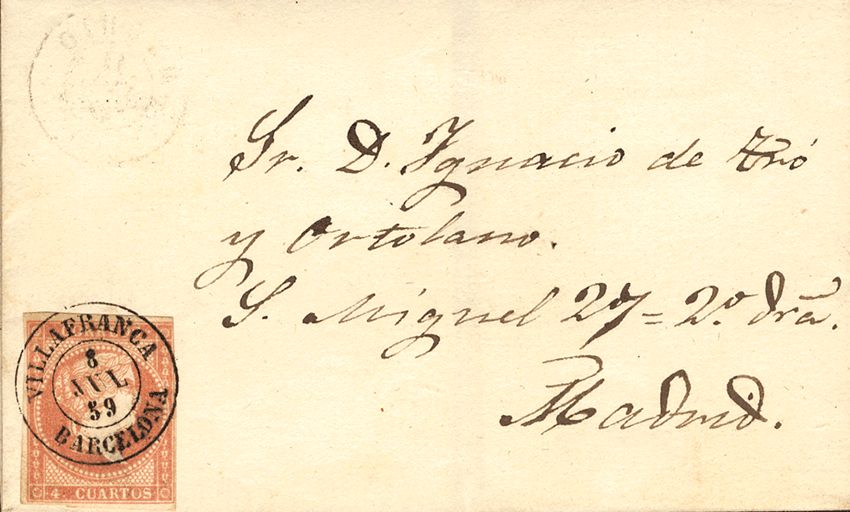 Sr. D. Ignacio de Tró
y Ortolano.
S. Miguel 27 = 2º dra.
Madrid.
VILLAFRANCA
8
JUL
59
BARCELONA
4 CUARTOS